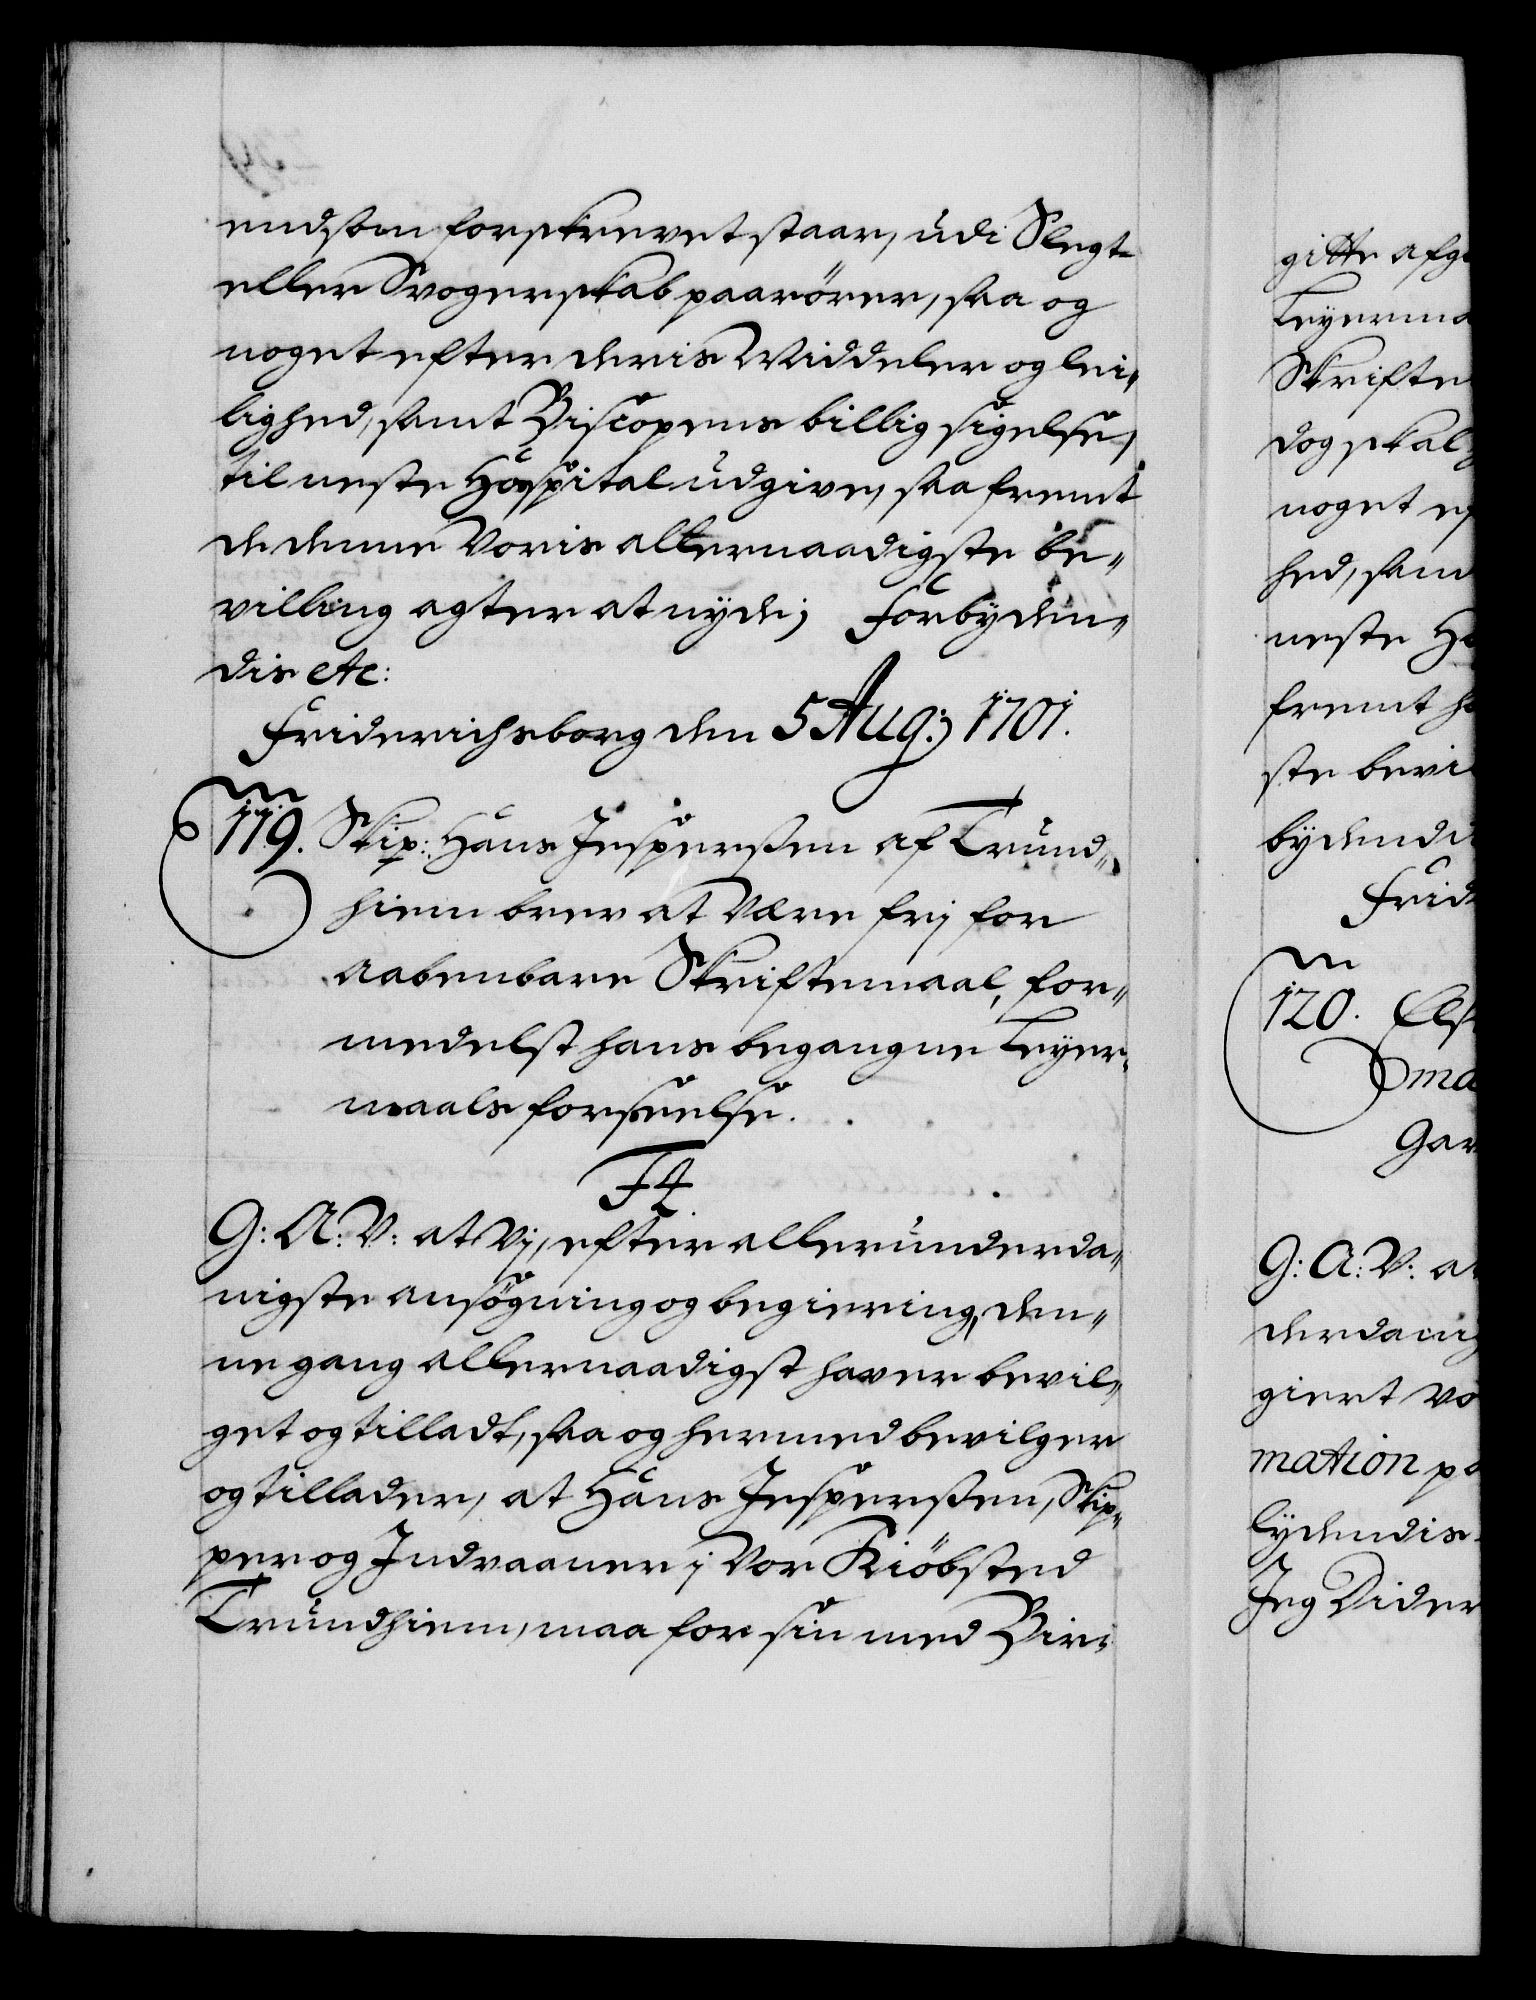 end som forskrevet staar, udi Slegt
eller Svogerskab paarörer, saa og
noget efter deris Middeler og lei„
lighed, samt Biscopens billig sigelse,
til neste Hospital udgive, saa fremt
de denne Voris allernaadigste be„
villing agter at nyde; Forbyden„
dis etc:
Friderichsborg den 5 Aug: 1701.
119. Skip: Hans Jesperssen af Trund„
hiem brev at være frj for
aabenbare Skriftemaal, for„
medelst hans begangne Leyer„
maals forseelse.
F4.
G: A: V: at Vj, efter allerunderda„
nigste ansögning og begiering, den„
ne gang allernaadigst haver bevil„
get og tilladt, saa og hermed bevilger
og tillader, at Hans Jesperssen, Skip„
per og Indvaaner j Vor Kiöbsted
Trundhiem, maa for sin med Bir„
gitte afg
Leyerma
Skrifte
dog skal
noget ef
hed, sam
neste Ho
fremt h
ste bevi
bydendi
Frid
120. Els
ma
Gar
G: A: V: a
derdanig
giert vo
mation p
lydendis
Jeg Dider